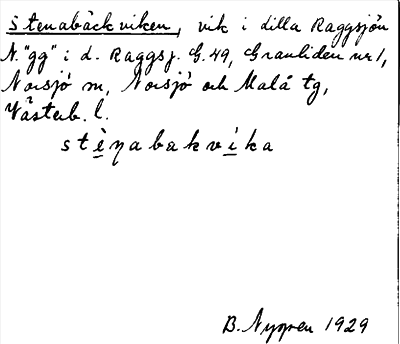 Stenabäckviken, vik i dilla Raggsjön
N. "gg" i d. Raggsj. G. 49, Granliden nr 1,
Norsjö m, Norsjö och Malå tg,
Västerb. l.
stènabakvika
B. Nygren 1929